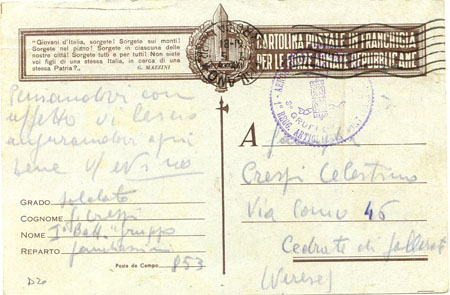 "Giovani d'Italia, sorgete! Sorgete sui monti!
Sorgete nel piano! Sorgete in ciascuna delle
nostre città! Sorgete tutti e per tutti! Non siete
voi figli di una stessa Italia, in cerca di una
stessa Patria?„
G. MAZZINI
CARTOLINA POSTALE IN FRANCHIGIA
PER LE FORZE ARMATE REPUBBLICANE
Pensandovi con
affetto vi lascio
augurandovi ogni
bene
A
Crespi Celestino
Via Como 45
Cedrate di Gallarate
(Varese)
GRADO soldato
COGNOME Crespi
NOME
REPARTO
Posta da Campo 853
D20